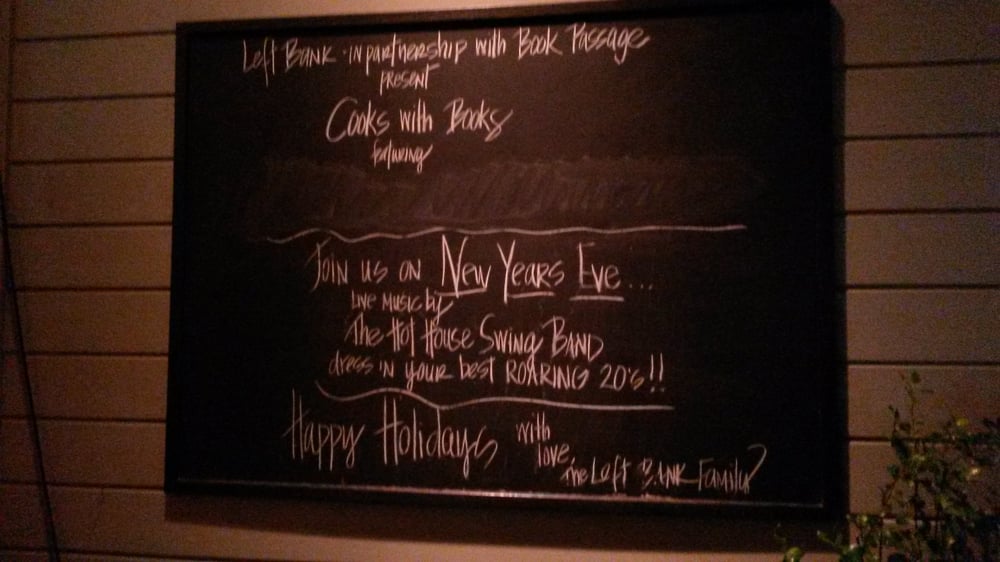 Left Bank · in partnership with Book Passage
present
Cooks with Books
featuring
Join us on New Years Eve...
Live Music by
The Hot House Swing Band
dress in your best ROARING 20's!!
Happy Holidays with
love,
The Left Bank Family